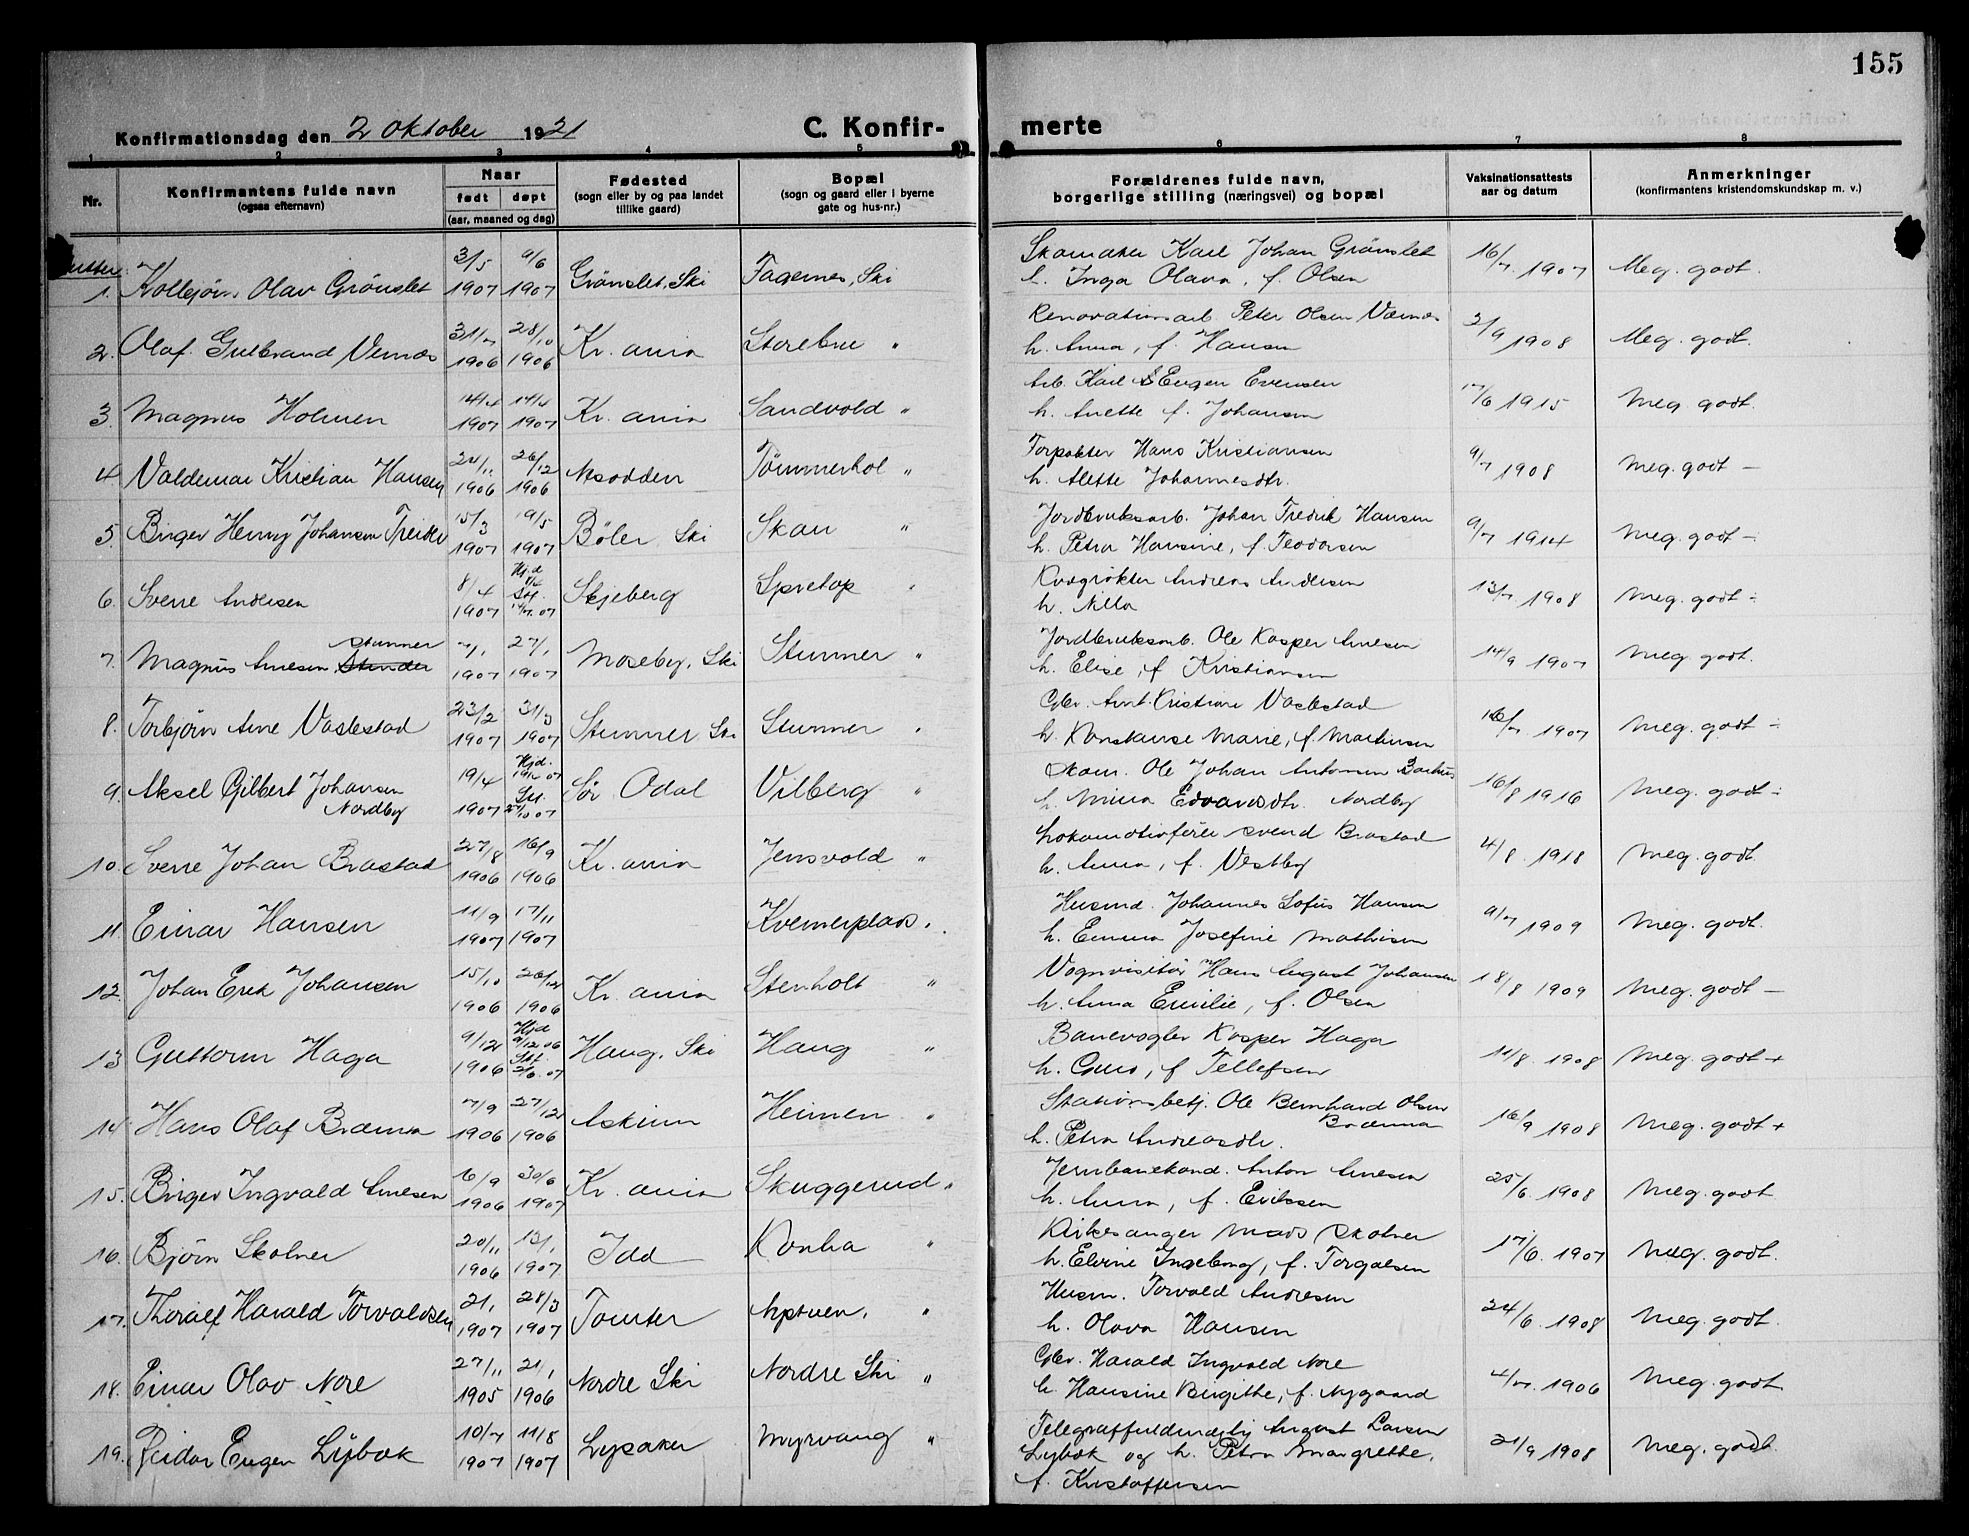 155
Konfirmationsdag den 2 Oktober 1921
C. Konfir-
merte
1 2 3 4 5 6 7 8
Nr.
Konfirmantens fulde navn
(ogsaa efternavn)
Naar
født døpt
(aar, maaned og dag)
Fødested
(sogn eller by og paa landet
tillike gaard)
Bopæl
(sogn og gaard eller i byerne
gate og hus-nr.)
Forældrenes fulde navn,
borgerlige stilling (næringsvei) og bopæl
Vaksinationsattests
aar og datum
Anmerkninger
(konfirmantens kristendomskundskap m. v.)
1. Olav Grønslet 3/5 1907 9/6 1907 Grønslet, Ski Fagernes, Ski
Skomaker Karl Johan Grønslet
h. Inga Olava, f. Olsen 16/7 1907 Meg. godt.
2. Olaf Gulbrand Vernæs 31/7 1906 28/10 1906 Kr.ania Storebru "
Renovationsarb. Peter Olsen
h. Anna, f. Hansen 2/9 1908 Meg. godt.
3. Magnus Holmen 14/4 1907 14/4 1907 Kr.ania Sandvold "
Arb. Karl Eugen Evensen
h. Anette f. Johansen 17/6 1915 Meg. godt.
4 Valdemar Kristian Hansen 24/11 1906 26/12 1906 Nesodden Tømmerhol "
Hans Kristiansen
h. Alette Johannesdtr. 9/7 1908 Meg. godt -
5. Birger Henry Johansen 15/3 1907 19/5 1907 Bøler, Ski Skau "
Jordbruksarb. Johan Fredrik Hansen
h. Petra Hansine, f. Teodorsen 9/7 1914 Meg. godt -
6. Sverre Andersen 8/4 1907 Hjd 8/4 Stf. 14/7.07 Skjeberg "
Andreas Andersen
h. 13/7 1908 Meg. godt -
7. Magnus Arnesen Stunner 7/1 1907 27/1 1907 Moseby, Ski Stunner "
Jordbruksarb. Ole Kasper Arnesen
h. Elise, f. Kristiansen 14/9 1907 Meg. godt.
8. Torbjørn Arne Vastestad 23/2 1907 31/3 1907 Stunner Ski Stunner "
Gbr. Arnt Kristian Vastestad
h. Konstanse Marie, f. Martinsen 1907 Meg. godt -
9. Aksel Gilbert Johansen
Nordby 19/4 1907 Hjd. 19/4 07 Stf. 27/10 07 Sør Odal Vilberg "
Skom. Ole Johan Antonsen
h. Mina Edvardsdtr. Nordby 16/8 1916 Meg. godt -
10. Sverre Johan Brastad 27/8 1906 16/9 1906 Kr.ania Jensvold "
Lokomotivfører Svend Brastad
h. Anna, f. Vestby 4/8 1918 Meg. godt.
11 Einar Hansen 11/9 1907 17/11 1907 Kvernerplass "
Husmd. Johannes Sofus Hansen
h. Emma Josefine Mathisen 9/7 1909 Meg. godt.
12. Johan Erik Johansen 15/10 1906 26/12 1906 Kr.ania Stenholt "
Vognvisitør Hans August Johansen
h. Anna Emilie, f. Olsen 18/8 1909 Meg. godt -
13 Guttorm Haga 9/12 1906 Hjd 9/12 06 Stf. 2/6 07 Haug, Ski Haug "
Banevogter Kasper Haga
h. Guro, f Tellefsen 11/8 1908 Meg. godt +
14. Hans Olaf Brænna 7/9 1906 27/12 1906 Askim Heimen "
Stationsbetj. Ole Bernhard Olsen
Brænna
h. Petra Andreasdtr. 16/9 1908 Meg. godt +
15. Birger Ingvald Arnesen 16/9 1906 30/6 1907 Kr.ania Skuggerud "
Jernbanekond. Anton Arnesen
h. Anna, f. Eriksen 25/6 1908 Meg. godt
16. Bjørn Skolner 20/11 1906 13/1 1907 Idd Kontra "
Kirkesanger Mads Skolner
h. Elvine Ingeborg, f. Torgalsen 17/6. 1907 Meg. godt.
17. Thoralf Harald Torvaldsen 2/1 1907 28/3 1907 Tomter "
Husm. Torvald Andresen
h. Olava Hansen 24/6. 1908 Meg. godt.
18. Einar Olav Nore 27/11 1905 21/1 1906 Nordre Ski Nordre Ski "
Gbr. Harald Ingvald Nore
h. Hansine Birgithe, f. Nygaard 4/7. 1906 Meg. godt.
19. Reidar Eugen Lybæk 10/7 1907 11/8 1907 Lysaker Myrvang "
August Larsen
Lybæk og h. Petra Margrethe,
f. Kristoffersen 21/9 1908 Meg. godt.